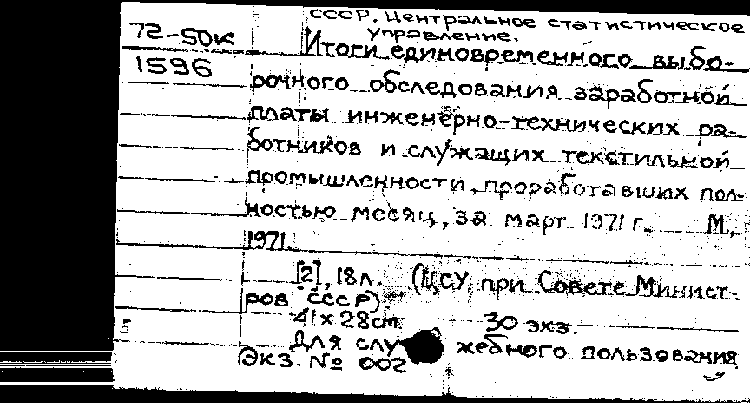 СССР. Центральное статистическое
72-50к управление.
Итоги единовременного выбо-
1596
рочного обследования заработной
платы инженерно-технических ра-
ботников и служащих текстильной
промышленности, проработавших пол-
ностью месяц, за март 1971 г. М.,
1971.
[2], 18 л. (ЦСУ при Совете Минист-
ров СССР)
41 x 28 см. 30 экз.
Для служебного пользования.
Экз. № 002